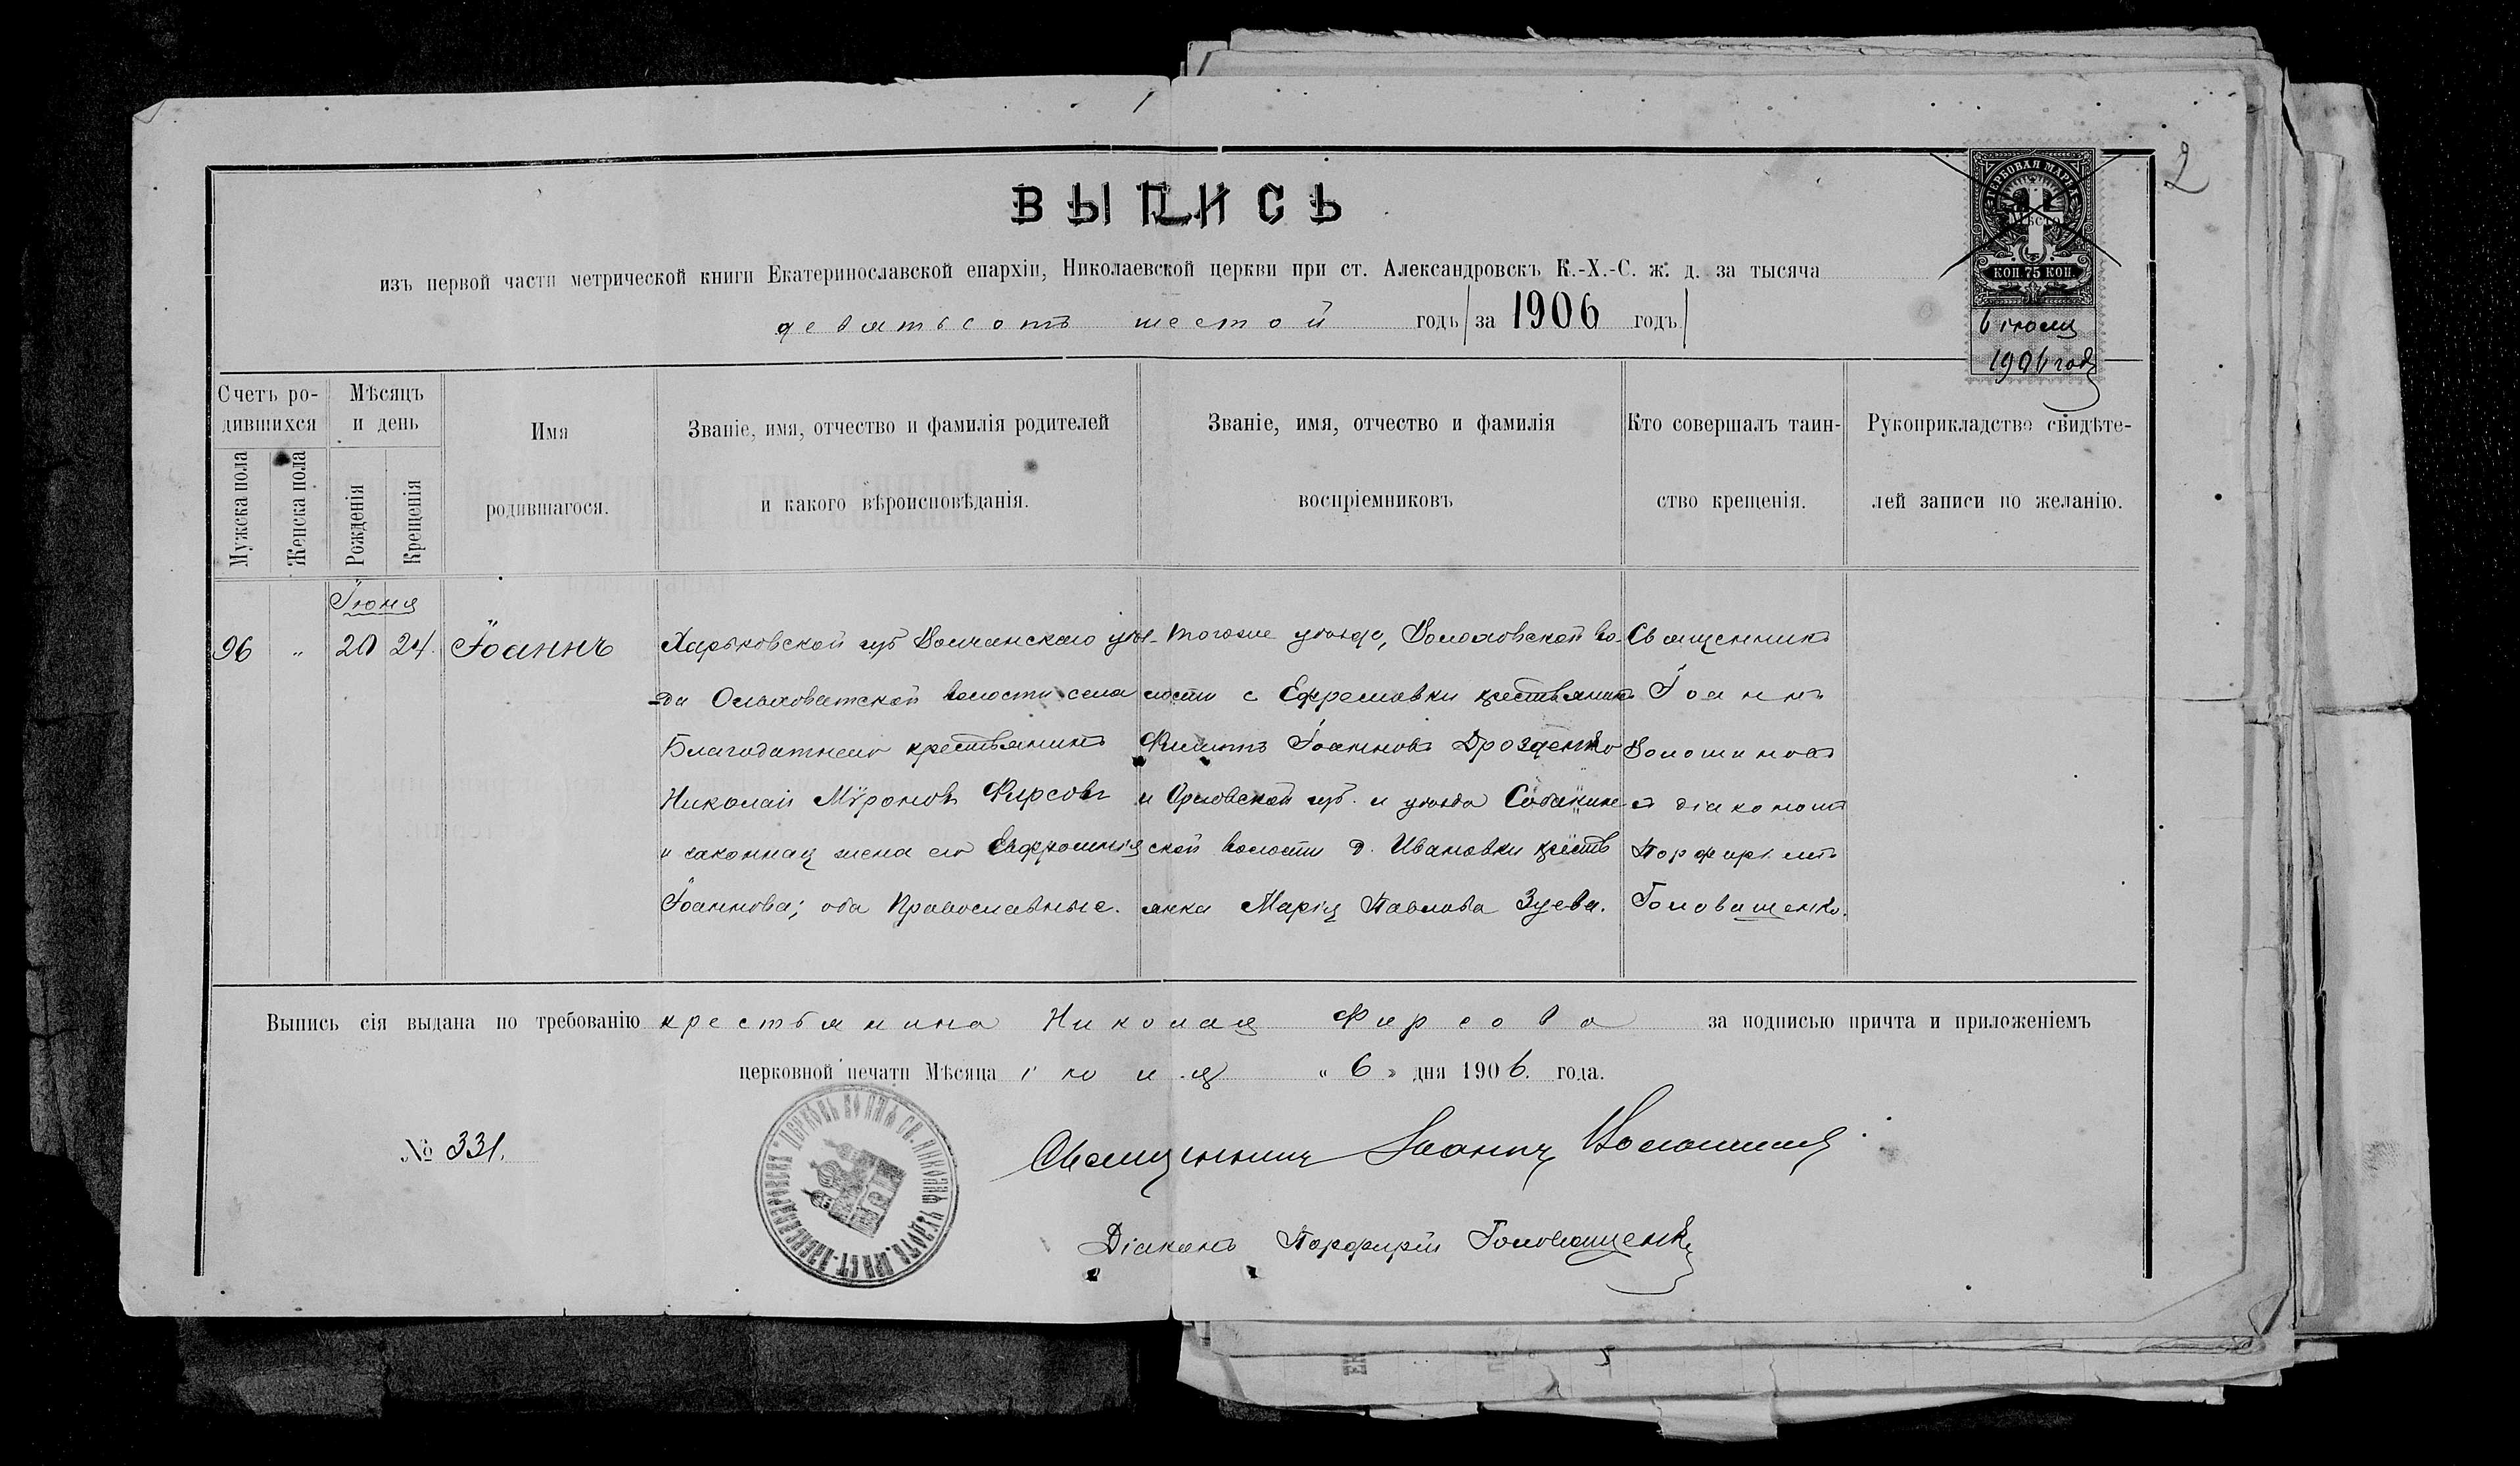 1
2
ВЫПИСЬ
ГЕРБОВАЯ МАРКА
ВМѢСТО
КОП. 75 КОП.
6 іюля
1906 года
изъ первой части метрической книги Екатеринославской епархіи, Николаевской церкви при ст. Александровскъ К.-Х.-С. ж. д. за тысяча
девятьсотъ шестой годъ за 1906 годъ
Счетъ ро-
дившихся
Мужска пола
Женска пола
Мѣсяцъ
и день
Рожденія
Крещенія
Имя
родившагося.
Званіе, имя, отчество и фамилія родителей
и какого вѣроисповѣданія.
Званіе, имя, отчество и фамилія
воспріемниковъ
Кто совершалъ таин-
ство крещенія.
Рукоприкладство свидѣте-
лей записи по желанію.
Іюня
96 " 20 24. Іоаннъ
Харьковской губ Волчанскаго уѣз-
да Ольховатской волости села
Благодатнаго крестьянинъ
Николай Мѵроновъ Фирсовъ
и законная жена его Евфросинія
Іоаннова; оба Православные.
Тогоже уѣзда, Волоховской во-
лости с Ефремовки крестьянинъ
Филиппъ Іоанновъ Дрозденко
и Орловской губ. и уѣзда Собакин-
ской волости д. Ивановки кресть
янка Марія Павлова Зуева.
Священникъ
Іоаннъ
Волошиновъ
съ діакономъ
Порфиріемъ
Головащенко.
Выпись сія выдана по требованію крестьянина Николая Фирсова за подписью причта и приложеніемъ
церковной печати Мѣсяца іюля « 6 » дня 1906. года.
№ 331.
Священникъ Іоаннъ Волошиновъ
Діаконъ Порфирій Головащенко